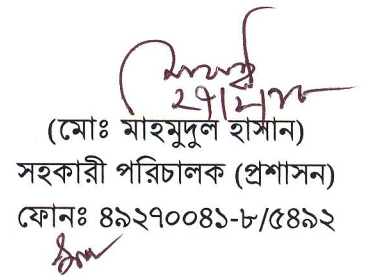 (মোঃ মাহমুদুল হাসান)
সহকারী পরিচালক (প্রশাসন)
ফোনঃ ৪৯২৭০০৪১-৮/৫৪৯২